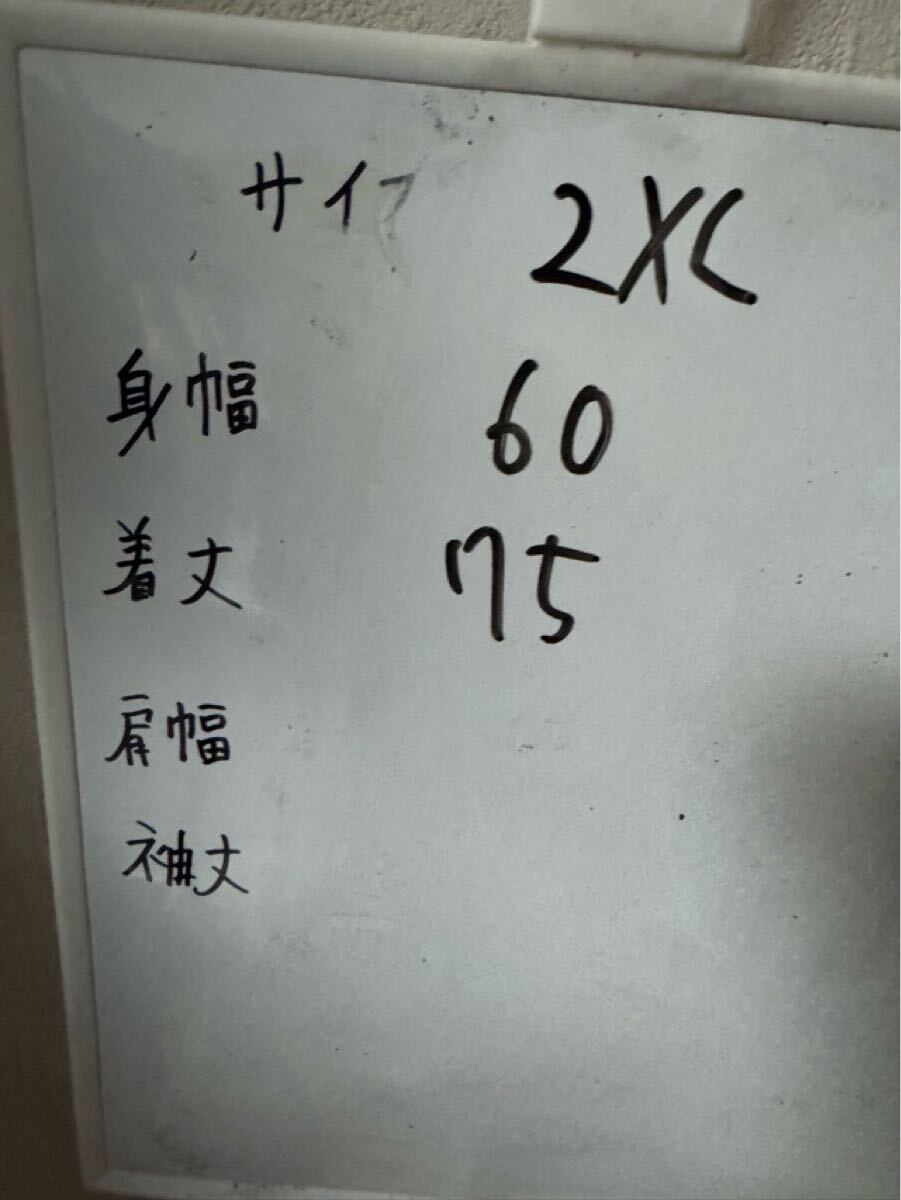 サイズ 2XL
身幅 60
着丈 75
肩幅
袖丈